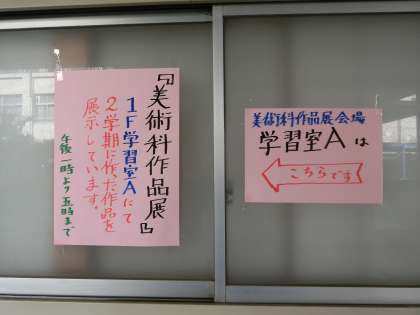 『美術科作品展』
1F学習室Aにて
2学期に作った作品を
展示しています。
午後一時より五時まで
美術科作品展会場
学習室Aは
こちらです